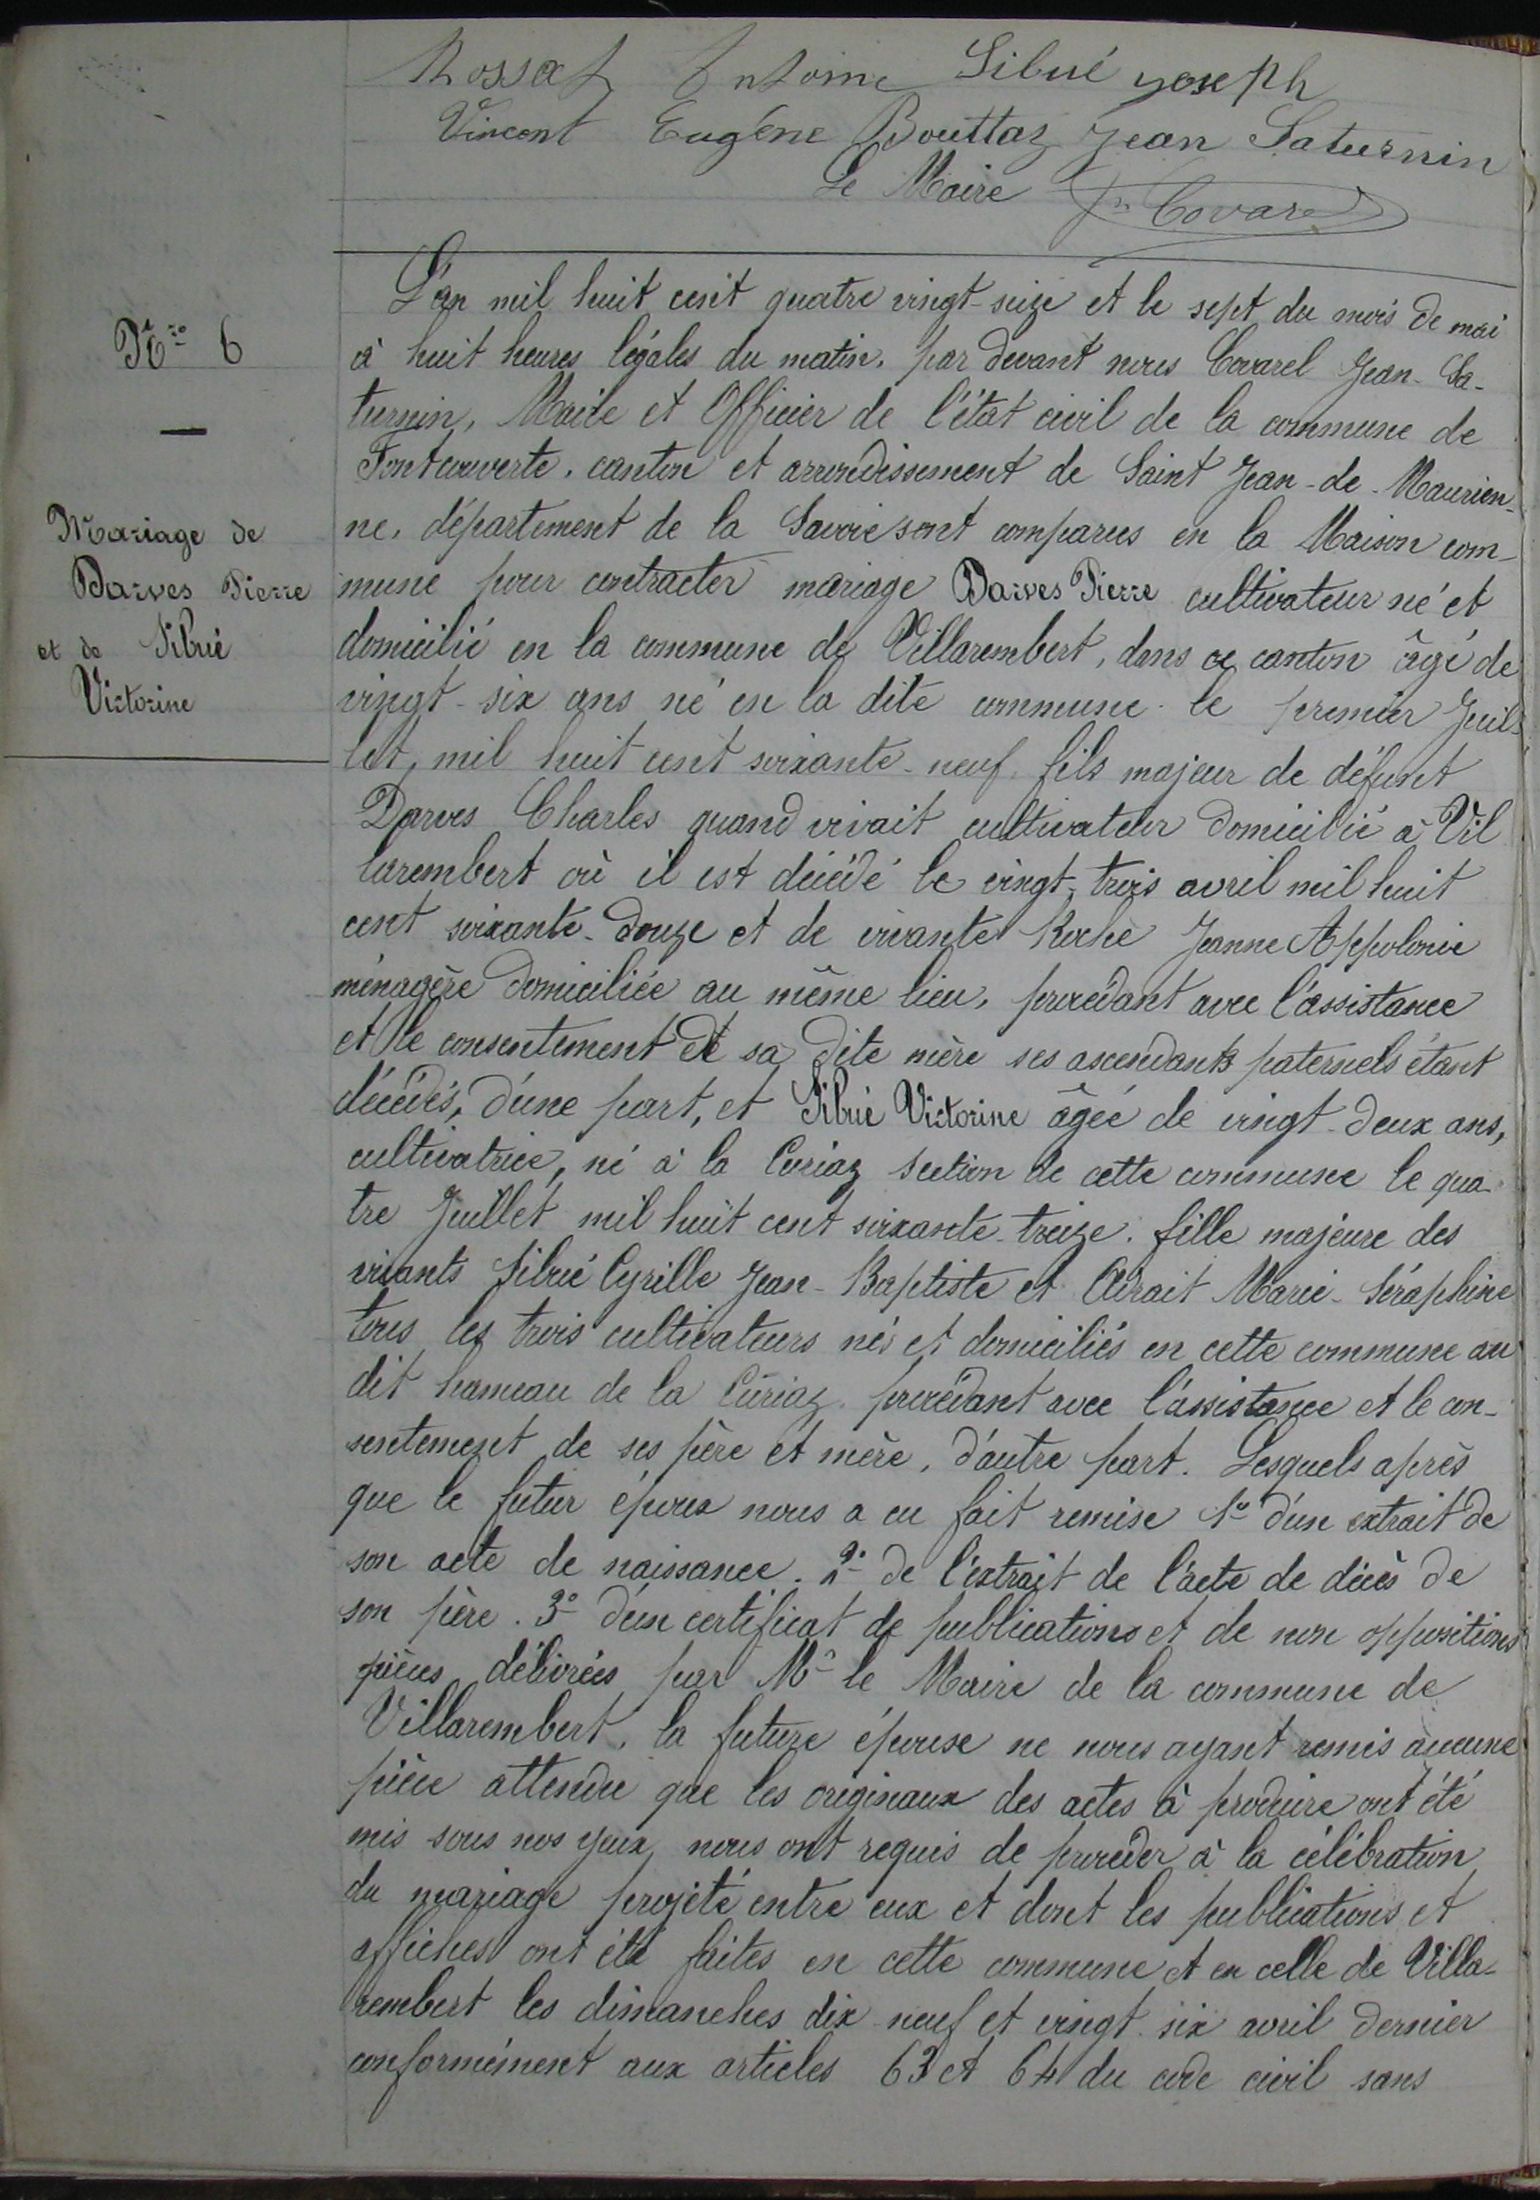 Rossat Antoine Sibué joseph
Vincent Eugéne Bouttaz Jean Saturnin
Le Maire Jn Covarel
Nro 6
Mariage de
Darves Pierre
et de Sibué
Victorine
L'an mil huit cent quatre vingt-seize et le sept du mois de mai
à huit heures légales du matin, par devant nous Covarel Jean-Sa-
turnin, Maire et Officier de l'état civil de la commune de
Fontcouverte, canton et arrondissement de Saint Jean-de-Maurien-
ne, département de la Savoie sont comparus en la Maison com-
mune pour contracter mariage Darves Pierre cultivateur né et
domicilié en la commune de Villarembert, dans ce canton âgé de
vingt-six ans né en la dite commune le premier Juil-
let, mil huit cent soixante-neuf fils majeur de défunt
Darves Charles quand vivait cultivateur domicilié à Vil
larembert où il est décédé le vingt-trois avril mil huit
cent soixante-douze et de vivante Roche Jeanne Appolonie
ménagère domiciliée au même lieu, procédant avec l'assistance
et le consentement de sa dite mère ses ascendants paternels étant
décédés, d'une part, et Sibué Victorine âgée de vingt-deux ans,
cultivatrice, né à la Curiaz section de cette commune le qua-
tre Juillet mil huit cent soixante-treize. fille majeure des
vivants Sibué Cyrille Jean-Baptiste et Airait Marie-Séraphine
tous les trois cultivateurs nés et domiciliés en cette commune au
dit hameau de la Curiaz. procédant avec l'assistance et le con-
sentement de ses père et mère, d'autre part. Lesquels après
que le futur époux nous a eu fait remise 1º d'un extrait de
son acte de naissance. 2º de l'extrait de l'acte de décès de
son père. 3º d'un certificat de publications et de non oppositions
pièces délivrées par Mr le Maire de la commune de
Villarembert, la future épouse ne nous ayant remis aucune
pièce attendu que les originaux des actes à produire ont été
mis sous nos yeux, nous ont requis de procéder à la célébration
du mariage projeté entre eux et dont les publications et
affiches ont été faites en cette commune et en celle de Villa-
rembert les dimanches dix-neuf et vingt-six avril dernier
conformément aux articles 63 et 64 du code civil sans